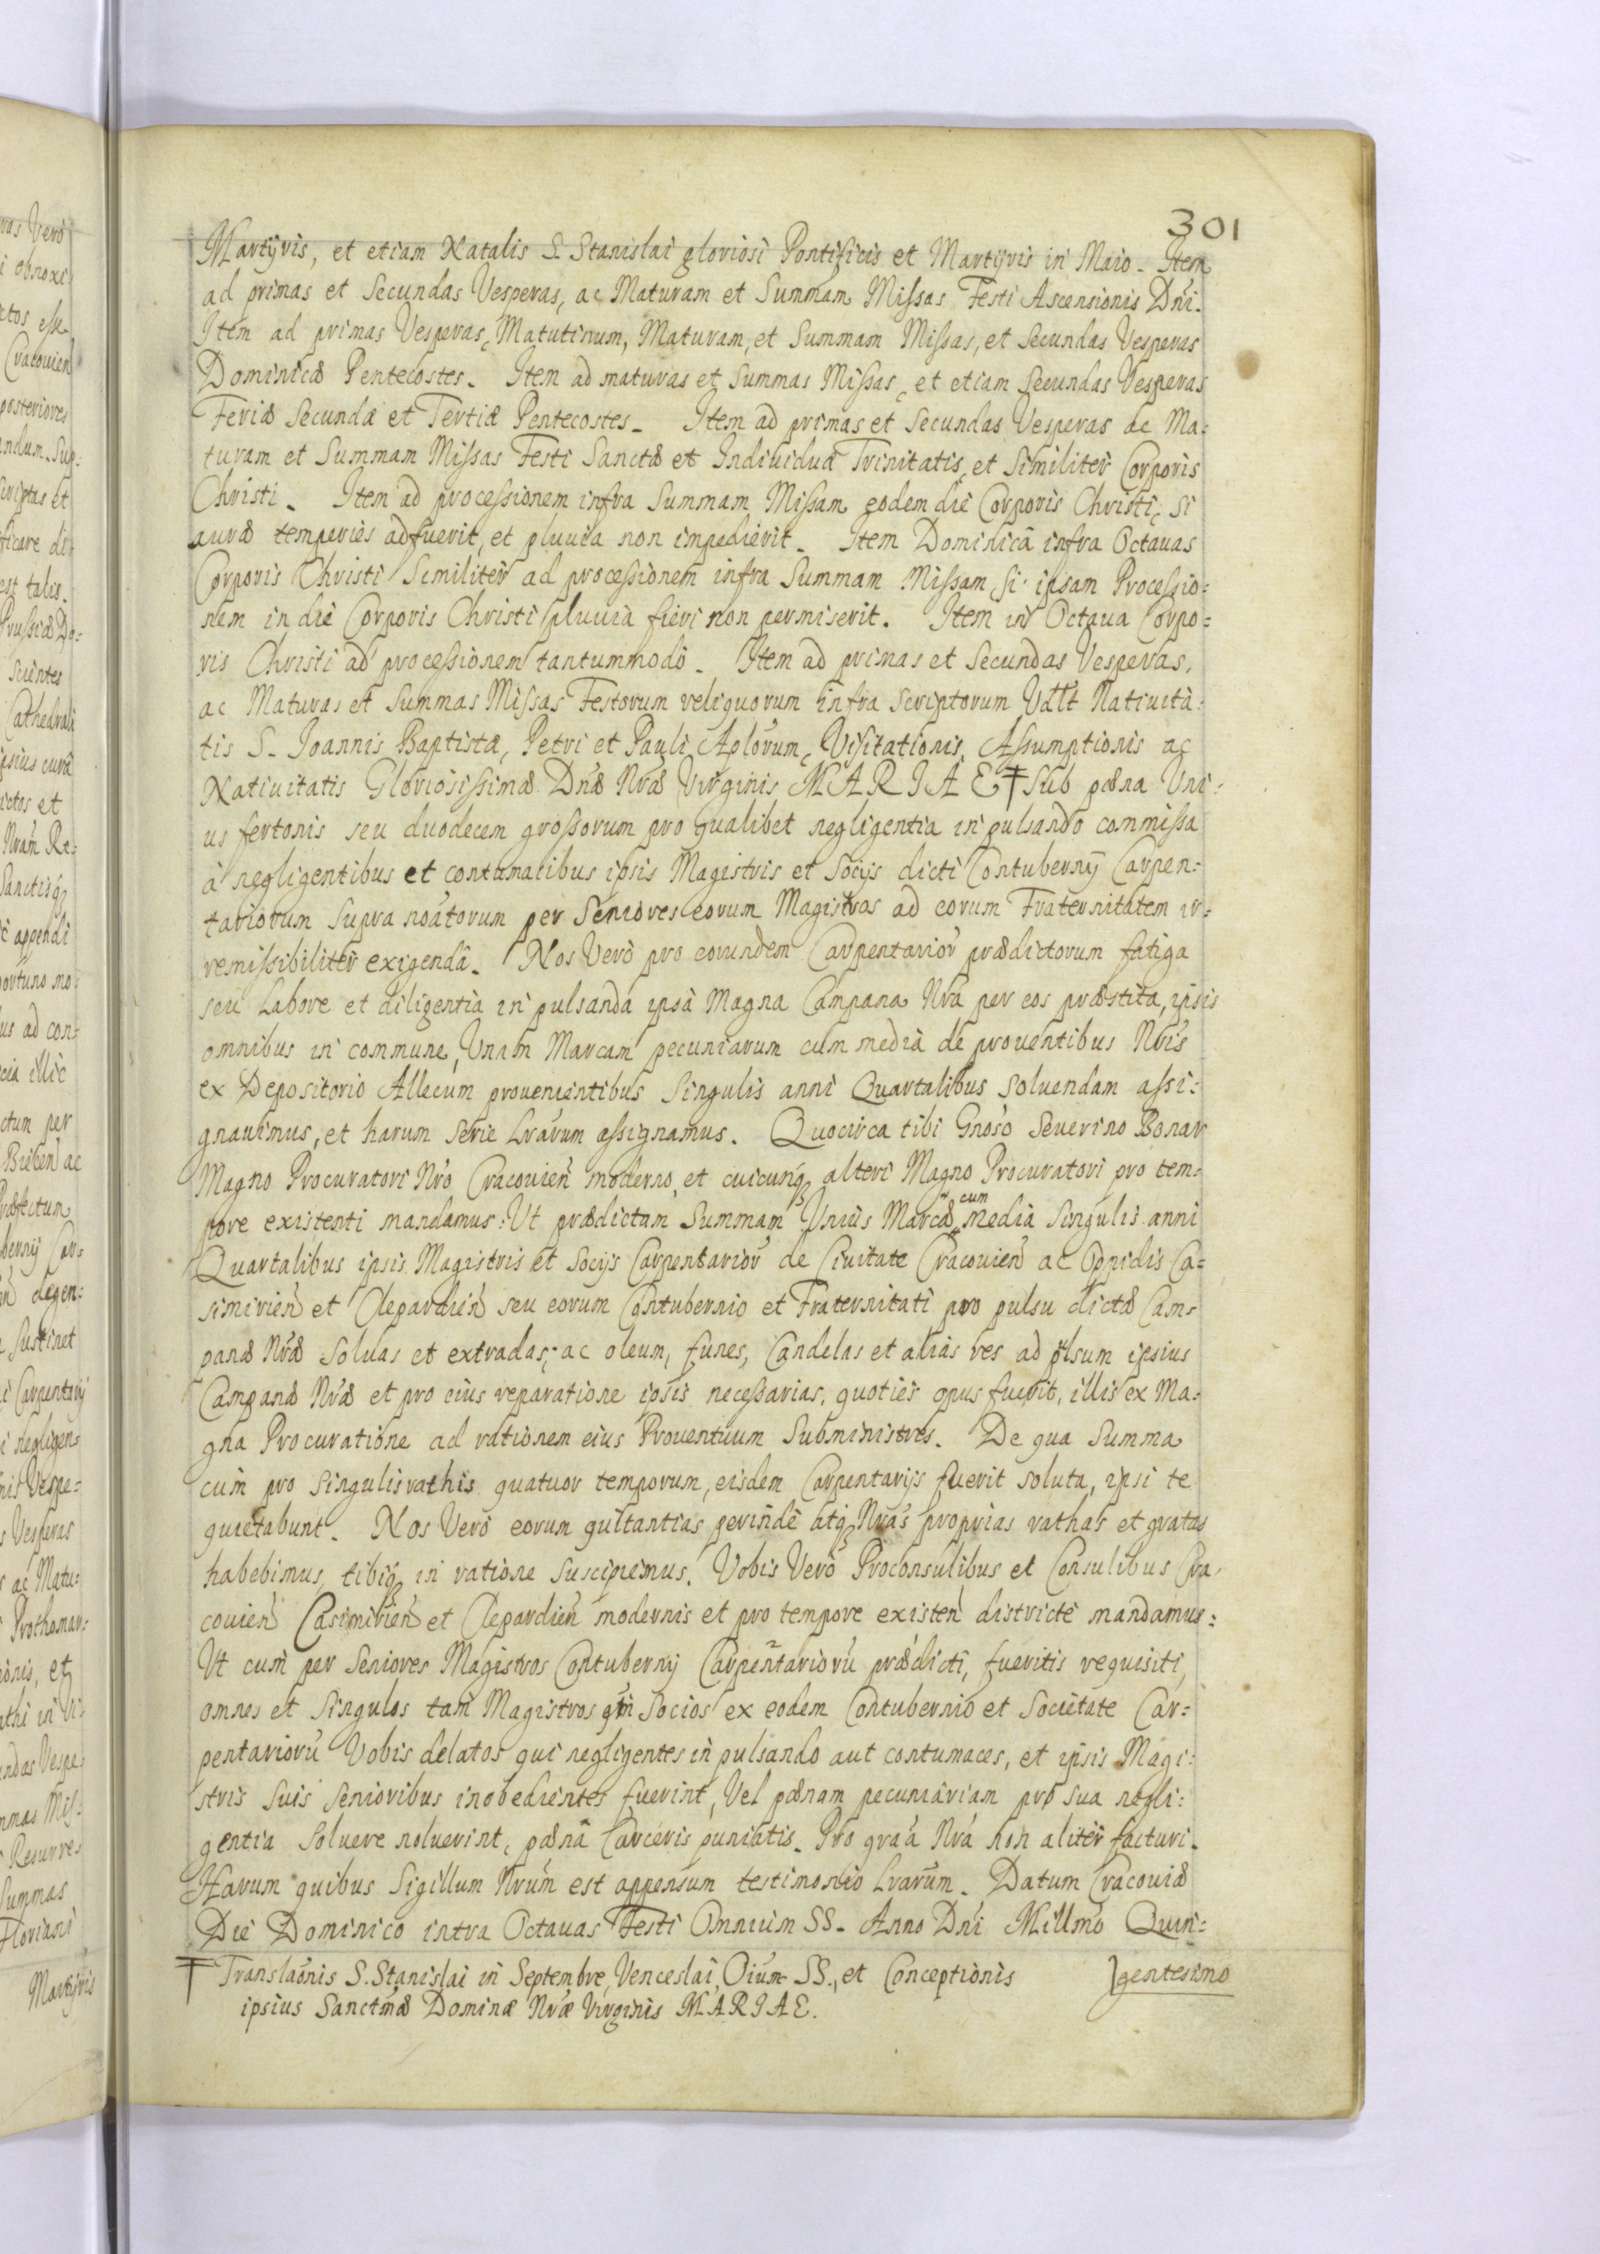 301
Martÿris, et etiam Natalis S. Stanislai gloriosi Pontificis et Martÿris in Maio. Item
ad primas et Secundas Vesperas, ac Maturam et Summam Missas Festi Ascensionis Dni.
Item ad primas Vesperas, Matutinum, Maturam, et Summam Missas, et Secundas Vesperas
Dominicæ Pentecostes. Item ad maturas et Summas Missas, et etiam Secundas Vesperas
Feriæ Secundæ et Tertiæ Pentecostes. Item ad primas et Secundas Vesperas de Ma:
turam et Summam Missas Festi Sanctæ et Indiuiduæ Trinitatis, et Similiter Corporis
Christi. Item ad processionem infra Summam Missam eodem die Corporis Christi, Si
auræ temperies adfuerit, et pluuia non impedierit. Item Dominica infra Octauas
Corporis Christi Similiter ad processionem infra Summam Missam, Si ipsam Processio:
nem in die Corporis Christi pluuia fieri non permiserit. Item in Octaua Corpo:
ris Christi ad processionem tantummodo. Item ad primas et Secundas Vesperas,
ac Maturas et Summas Missas Festorum reliquorum infra Scriptorum Vdlt Natiuita:
tis S. Joannis Baptistæ, Petri et Pauli Aplorum, Visitationis, Assumptionis ac
Natiuitatis Gloriosissimæ Dnæ Nræ Virginis MARIAE ‡ Sub pæna Vni:
us fertonis seu duodecem grossorum pro qualibet negligentia in pulsando commissa
à negligentibus et contumacibus ipsis Magistris et Socÿs dicti Contubernÿ Carpen:
tariorum Supra noatorum per Seniores eorum Magistros ad eorum Fraternitatem ir:
remissibiliter exigenda. Nos Verò pro eorundem Carpentarior prædictorum fatiga
seu Labore et diligentia in pulsanda ipsa Magna Campana Nra per eos præstita, ipsis
omnibus in commune, Vnam Marcam pecuniarum cum media de prouentibus Nris
ex Depositorio Allecum prouenientibus Singulis anni Quartalibus Soluendam assi:
gnauimus, et harum Serie Lrarum assignamus. Quocirca tibi Gnoso Seuerino Bonar
Magno Procuratori Nro Cracouien moderno, et cuicunq alteri Magno Procuratori pro tem:
pore existenti mandamus: Vt prædictam Summam Vnius Marcæ cum Media Singulis anni
Quartalibus ipsis Magistris et Socÿs Carpentarior de Ciuitate Cracouien ac Oppidis Ca:
simirien et Clepardien seu eorum Contubernio et Fraternitati pro pulsu dictæ Cam:
panæ Nræ Soluas et extradas; ac oleum, funes, Candelas et alias res ad pulsum ipsius
Campanæ Nræ et pro eius reparatione ipsis necessarias, quoties opus fuerit, illis ex Ma:
gna Procuratione ad rationem eius Prouentuum Subministres. De qua Summa
cum pro Singulis rathis quatuor temporum, eisdem Carpentarÿs fuerit Soluta, ipsi te
quietabunt. Nos Verò eorum quitantias perinde atq Nras proprias rathas et gratas
habebimus, tibiq in ratione Suscipiemus. Vobis Verò Proconsulibus et Consulibus Cra:
couien Casimirien et Clepardien modernis et pro tempore existen districte mandamus:
Vt cum per Seniores Magistros Contubernÿ Carpentarioru prædicti, fueritis requisiti,
omnes et Singulos tam Magistros qm Socios ex eodem Contubernio et Societate Car:
pentarioru Vobis delatos qui negligentes in pulsando aut contumaces, et ipsis Magi:
stris Suis Senioribus inobedientes fuerint, Vel pænam pecuniariam pro Sua negli:
gentia Soluere noluerint, pæna Carceris puniatis. Pro graa Nra non aliter facturi.
Harum quibus Sigillum Nrum est appensum testimonio Lrarum. Datum Cracouiæ
Die Dominico intra Octauas Festi Omnium SS. Anno Dni Millmo Quin:
gentesimo
‡ Translaonis S. Stanislai in Septembre, Venceslai, Oium SS., et Conceptionis
ipsius Sanctmæ Dominæ Nræ Virginis MARIAE.